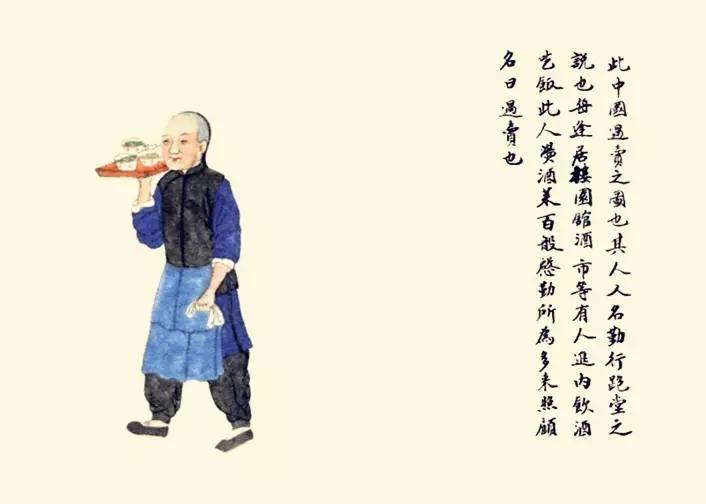 此中國過賣之圖也其人又名勤行跑堂之
說也每逢居樓園館酒市等有人進內飲酒
吃飯此人燙酒菜百般慇勤所為多来照顧
名曰過賣也